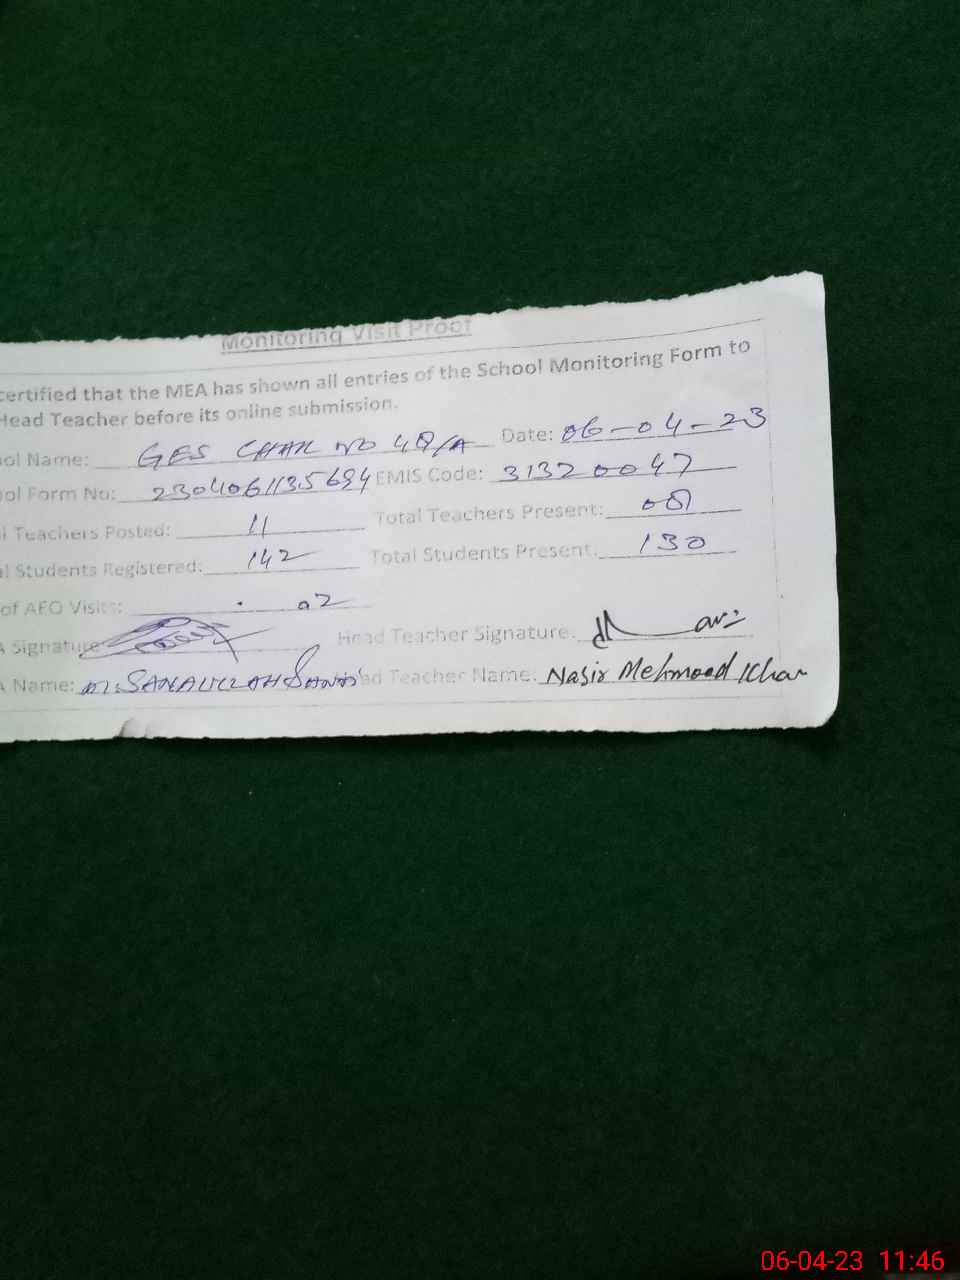 Monitoring Visit Proof
certified that the MEA has shown all entries of the School Monitoring Form to
Head Teacher before its online submission.
ool Name: GES CHAK NO 48/A Date: 06-04-23
ool Form No: 2304061135694 EMIS Code: 31320047
l Teachers Posted: 11 Total Teachers Present: 08
al Students Registered: 142 Total Students Present: 130
of AEO Visits: 02
A Signature Head Teacher Signature:
A Name: M. SANAULLAH ad Teacher Name: Nasir Mehmood Khan
06-04-23 11:46